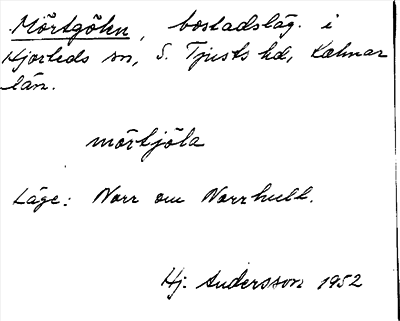 Mörtgöln, bostadsläg. i
Hjorteds sn, S. Tjusts hd, Kalmar
län.
mörtjöla
Läge: Norr om Norrhult.
Hj. Andersson 1952